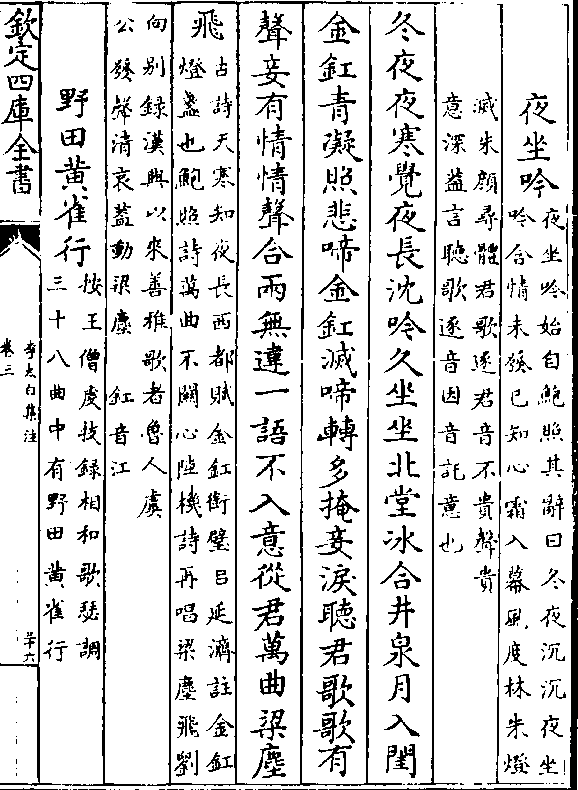 夜坐吟
夜坐吟始自鮑照其辭曰冬夜沉沉夜坐
吟含情未發已知心霜入幕風度林朱燈
滅朱顔尋體君歌逐君音不貴聲貴
意深蓋言聽歌逐音因音託意也
冬夜夜寒覺夜長沈吟久坐坐北堂冰合井泉月入閨
金釭青凝照悲啼金釭滅啼轉多掩妾淚聽君歌歌有
聲妾有情情聲合兩無違一語不入意從君萬曲梁塵
飛
古詩天寒知夜長西都賦金釭銜璧吕延濟註金釭
燈盞也鮑照詩萬曲不關心陸機詩再唱梁塵飛劉
向别録漢興以來善雅歌者魯人虞
公發聲清哀蓋動梁塵 釭音江
野田黄雀行
按王僧虔技録相和歌瑟調
三十八曲中有野田黄雀行
欽定四庫全書
李太白集注
卷三
二十六